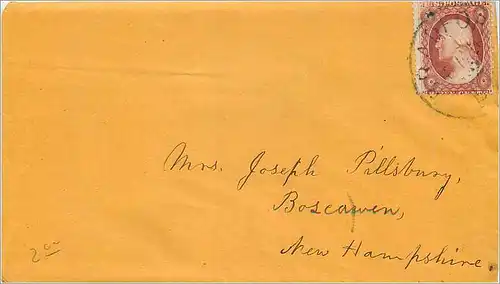 Mrs. Joseph Pillsbury,
Boscawen,
New Hampshire.
2.00